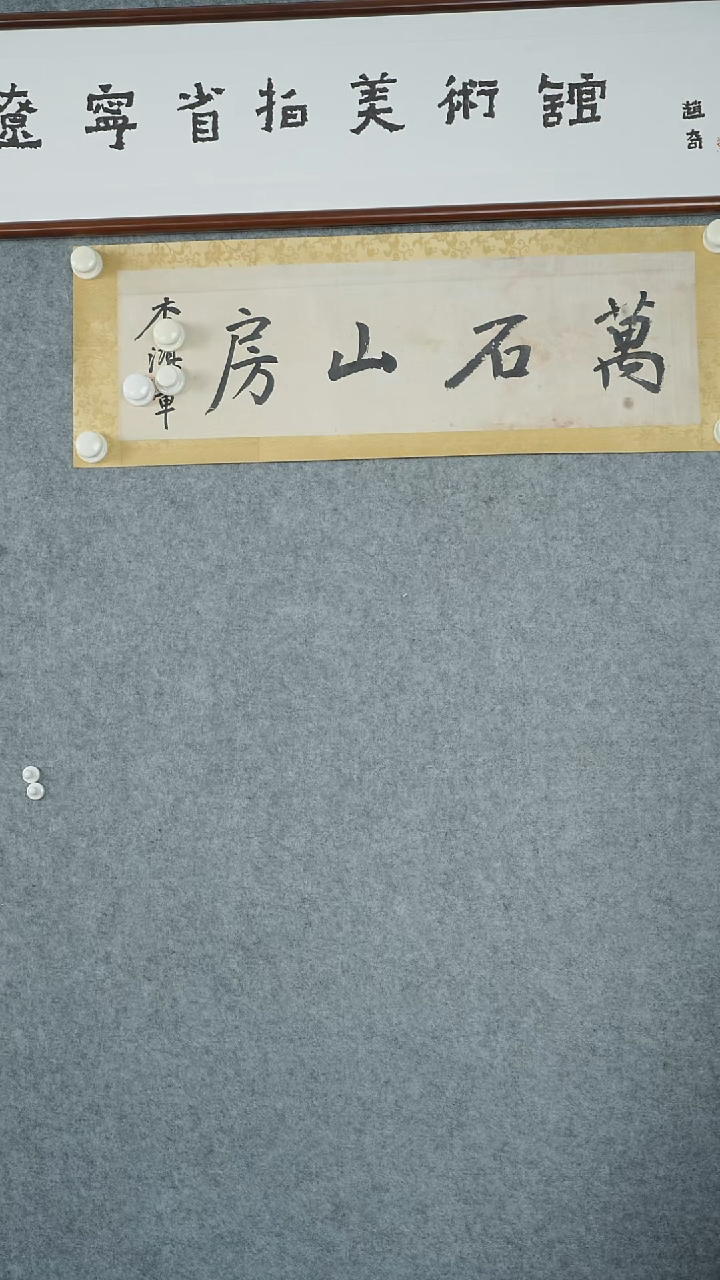 遼寧省拍美術館
趙奇
萬石山房